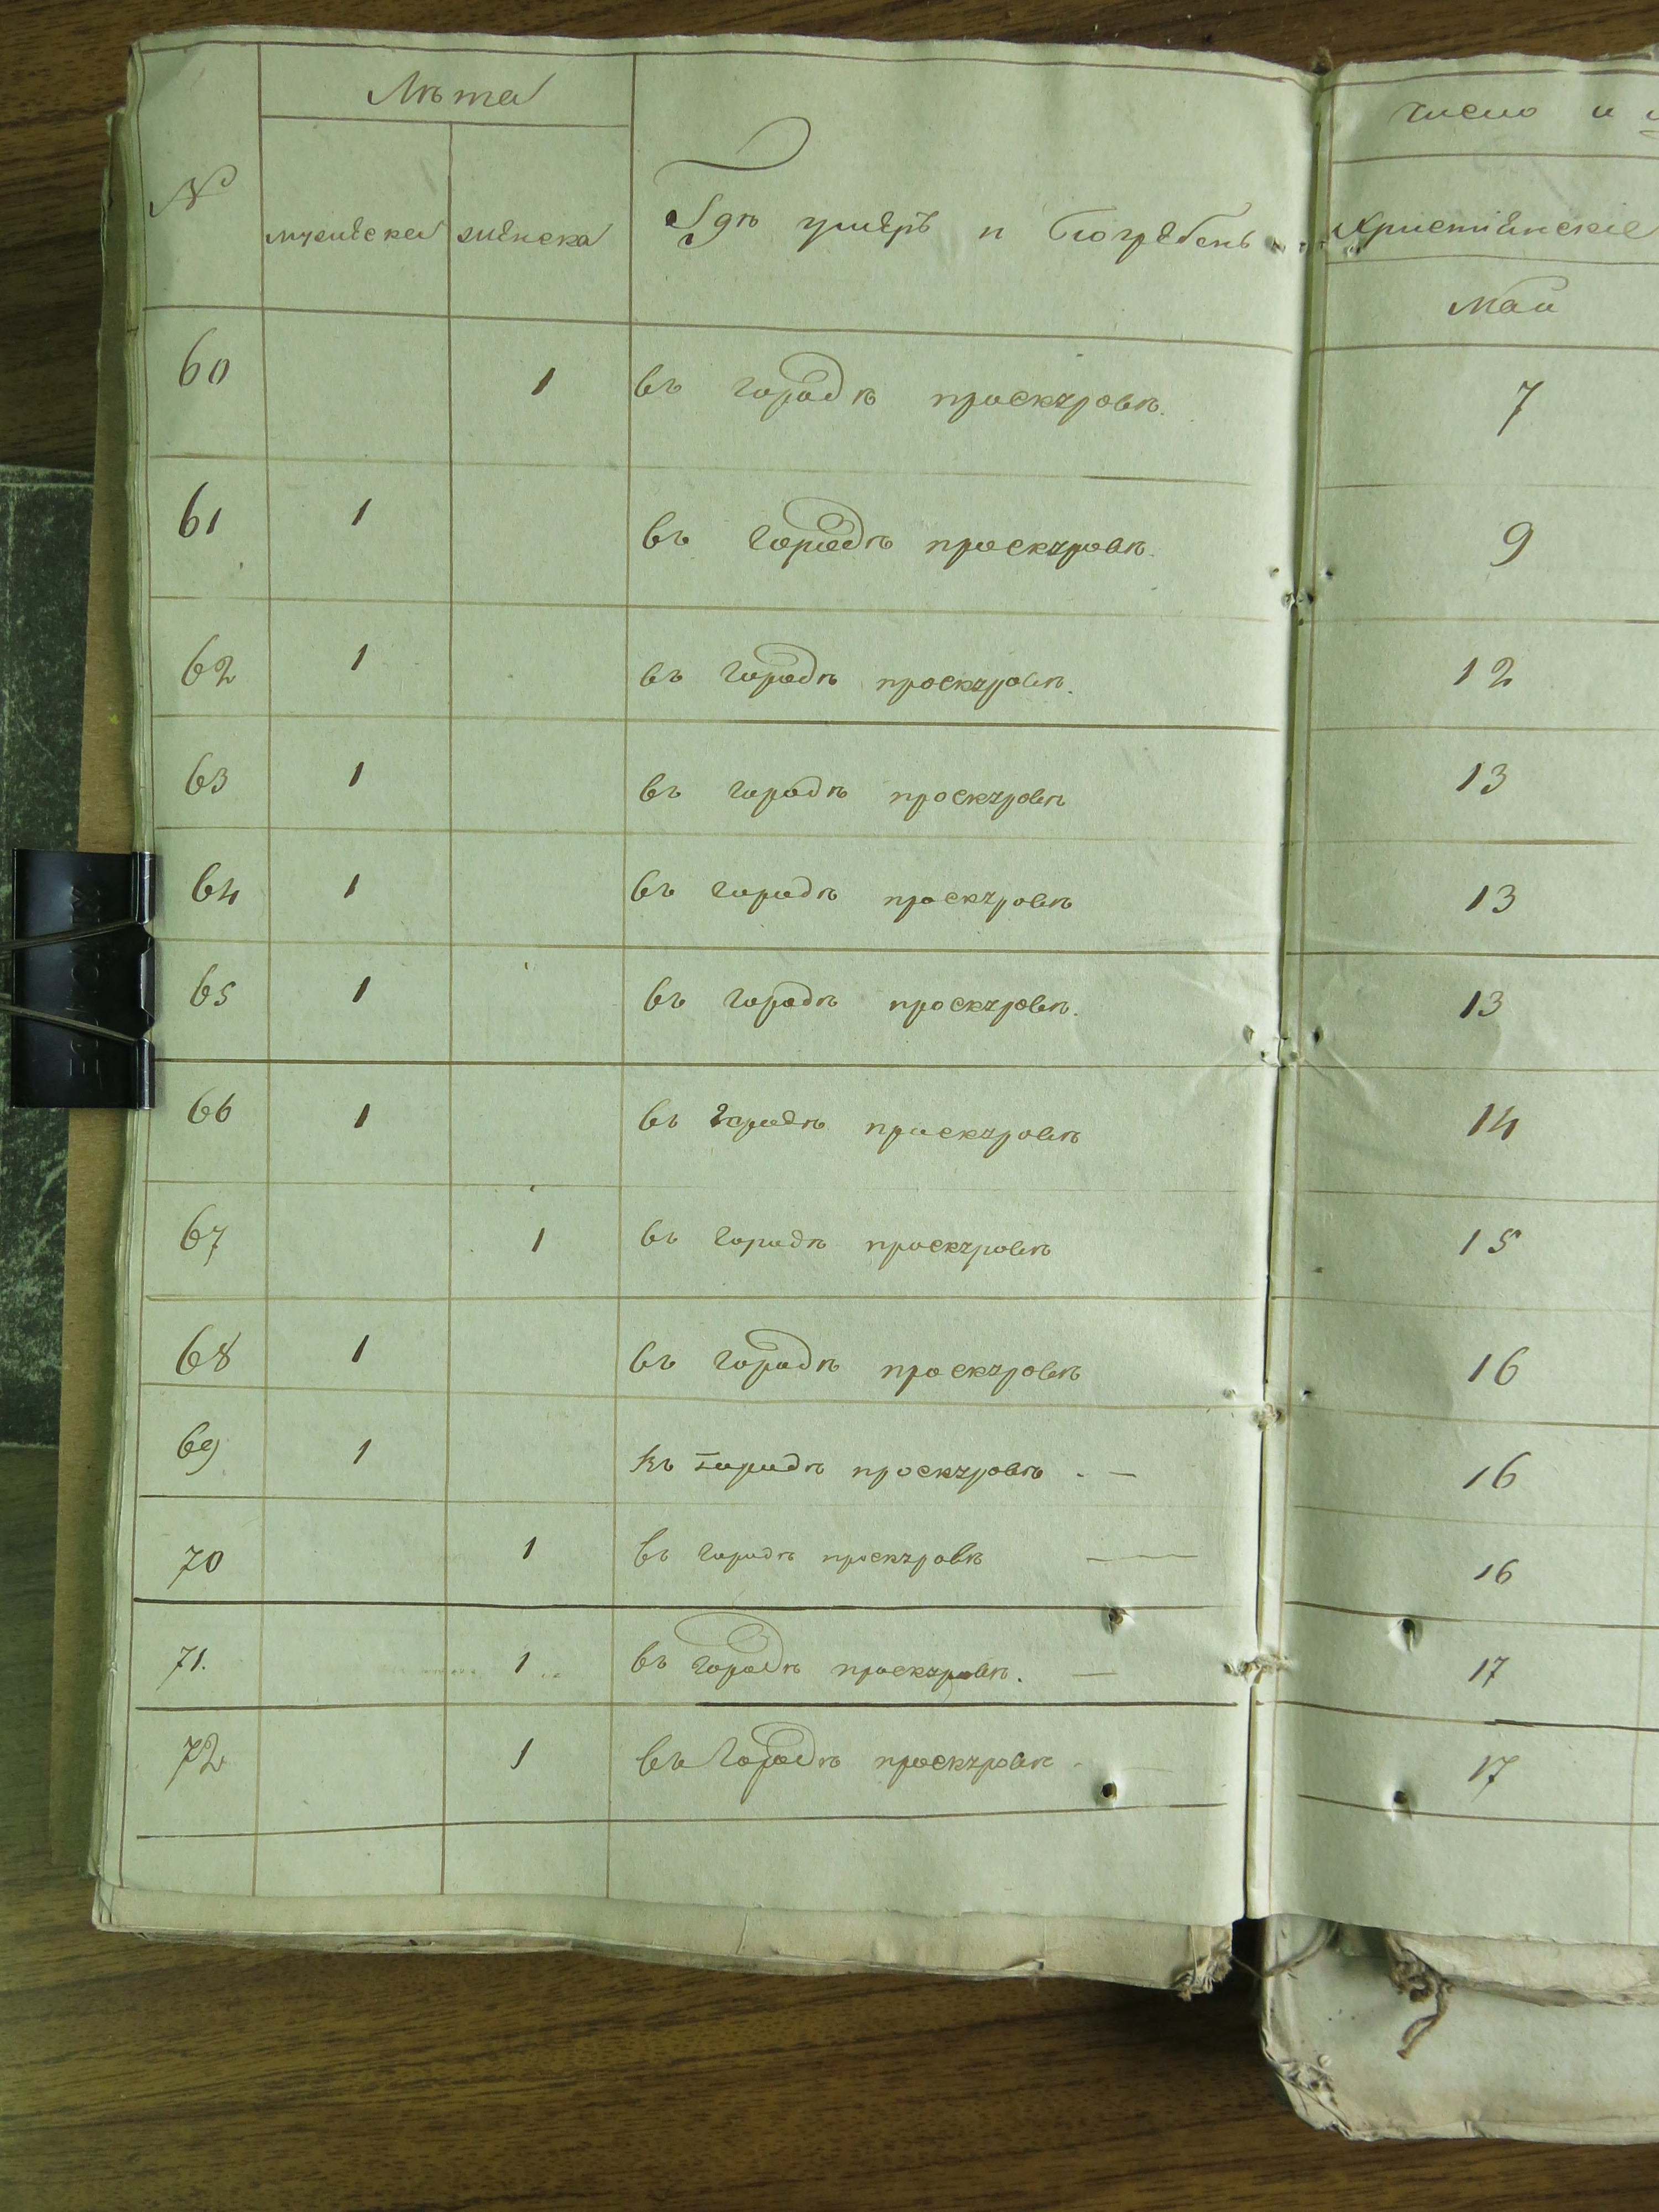 № Лѣта Где умеръ и погребенъ Число и
мужеска женска Христiанскiе
Маи
60 1 въ городѣ проскуровѣ. 7
61 1 въ городѣ проскуровѣ. 9
62 1 въ городѣ проскуровѣ. 12
63 1 въ городѣ проскуровѣ 13
64 1 въ городѣ проскуровѣ 13
65 1 въ городѣ проскуровѣ. 13
66 1 въ городѣ проскуровѣ 14
67 1 въ городѣ проскуровѣ 15
68 1 въ городѣ проскуровѣ 16
69 1 въ городѣ проскуровѣ . — 16
70 1 въ городѣ проскуровѣ — 16
71. 1 въ городѣ проскуровѣ. — 17
72 1 въ городѣ проскуровѣ - 17